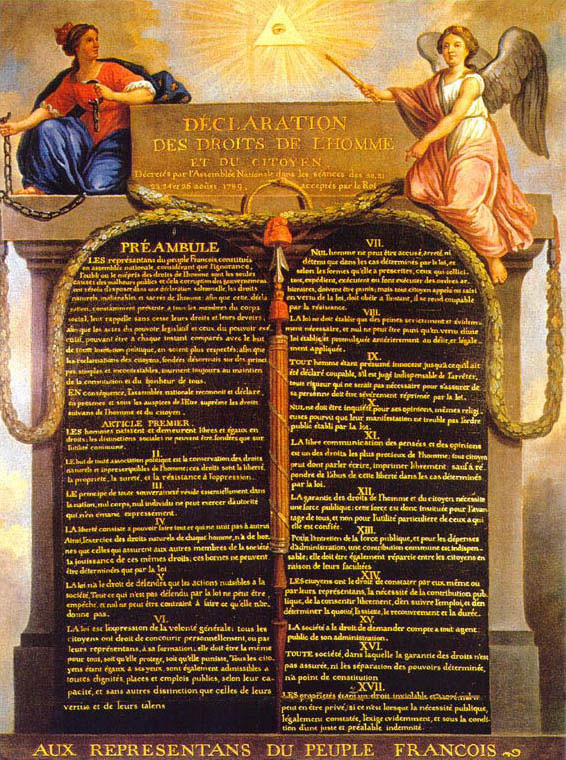 DÉCLARATION
DES DROITS DE L'HOMME
ET DU CITOYEN,
Décrétés par l'Assemblée Nationale dans les séances des 20, 21
23, 24 et 26 août 1789, acceptés par le Roi
PRÉAMBULE
LES représentans du peuple François, constitués
en assemblée nationale, considérant que l'ignorance,
l'oubli ou le mépris des droits de l'homme sont les seules
causes des malheurs publics et de la corruption des gouvernemens
ont résolu d'exposer dans une déclaration solemnelle, les droits
naturels, inaliénables et sacrés de l'homme; afin que cette décla-
ration, constamment présente à tous les membres du corps
social, leur rappelle sans cesse leurs droits et leurs devoirs;
afin que les actes du pouvoir législatif et ceux du pouvoir exé-
cutif, pouvant être à chaque instant comparés avec le but
de toute institution politique, en soient plus respectés; afin que
les réclamations des citoyens, fondées désormais sur des princi-
pes simples et incontestables, tournent toujours au maintien
de la constitution et du bonheur de tous.
EN conséquence, l'assemblée nationale reconnoit et déclare,
en présence et sous les auspices de l'Être suprême les droits
suivans de l'homme et du citoyen.
ARTICLE PREMIER.
LES hommes naissent et demeurent libres et égaux en
droits; les distinctions sociales ne peuvent être fondées que sur
l'utilité commune.
II.
LE but de toute association politique est la conservation des droits
naturels et imprescriptibles de l'homme; ces droits sont la liberté,
la propriété, la sureté, et la résistance à l'oppression.
III.
LE principe de toute souveraineté réside essentiellement dans
la nation, nul corps, nul individu ne peut exercer d'autorité
qui n'en émane expressément.
IV.
LA liberté consiste à pouvoir faire tout ce qui ne nuit pas à autrui
Ainsi, l'exercice des droits naturels de chaque homme, n'a de bor-
nes que celles qui assurent aux autres membres de la société
la jouissance de ces mêmes droits; ces bornes ne peuvent
être déterminées que par la loi
V.
LA loi n'a le droit de défendre que les actions nuisibles à la
société. Tout ce qui n'est pas défendu par la loi ne peut être
empêché, et nul ne peut être contraint à faire ce qu'elle n'or-
donne pas.
VI.
LA loi est l'expression de la volonté générale; tous les
citoyens ont droit de concourir personnellement, ou par
leurs représentans, à sa formation; elle doit être la même
pour tous, soit qu'elle protege, soit qu'elle punisse, Tous les cito-
yens étant égaux à ses yeux, sont également admissibles à
toutes dignités, places et emplois publics, selon leur ca-
pacité, et sans autres distinction que celles de leurs
vertus et de leurs talens
VII.
NUL homme ne peut être accusé, arreté ni
détenu que dans les cas déterminés par la loi, et
selon les formes qu'elle a prescrites, ceux qui sollici-
tent, expédient, exécutent ou font exécuter des ordres ar-
bitraires, doivent être punis; mais tout citoyen appelé ou saisi
en vertu de la loi, doit obéir à l'instant, il se rend coupable
par la résistance.
VIII.
LA loi ne doit établir que des peines strictement et évidem-
ment nécessaire, et nul ne peut être puni qu'en vertu d'une
loi établie et promulguée antérierement au délit, et légale-
ment appliquée.
IX.
TOUT homme étant présumé innocent jusqu'à ce qu'il ait
été déclaré coupable, s'il est jugé indispensable de l'arrêter,
toute rigueur qui ne serait pas nécessaire pour s'assurer de
sa personne doit être sévèrement réprimée par la loi.
X.
NUL ne doit être inquiété pour ses opinions, mêmes religi-
euses pourvu que leur manifestation ne trouble pas l'ordre
public établi par la loi.
XI.
LA libre communication des pensées et des opinions
est un des droits les plus précieux de l'homme; tout citoyen
peut donc parler, écrire, imprimer librement: sauf à ré-
pondre de l'abus de cette liberté dans les cas déterminés
par la loi.
XII.
LA garantie des droits de l'homme et du citoyen, nécessite
une force publique; cette force est donc instituée pour l'avan-
tage de tous, et non pour l'utilité particuliere de ceux a qui
elle est confiée.
XIII.
Pour l'entretien de la force publique, et pour les dépenses
d'administration, une contribution commune est indispen-
sable; elle doit être également répartie entre les citoyens en
raison de leurs facultées
XIV.
LES citoyens ont le droit de constater par eux même ou
par leurs représentans, la nécessité de la contribution pub-
lique, de la consentir librement, d'en suivre l'emploi, et d'en
déterminer la quotité, l'assiette, le recouvrement et la durée.
XV.
LA société a le droit de demander compte a tout agent
public de son administration.
XVI.
TOUTE société, dans laquelle la garantie des droits n'est
pas assurée, ni les séparation des pouvoirs déterminée,
n'a point de constitution
XVII.
LES propriétés étant un droit inviolable et sacré, nul ne
peut en être privé, si ce n'est lorsque la nécessité publique,
légalement constatée, l'exige évidemment, et sous la condi-
tion d'une juste et préalable indemnité.
AUX REPRESENTANS DU PEUPLE FRANCOIS